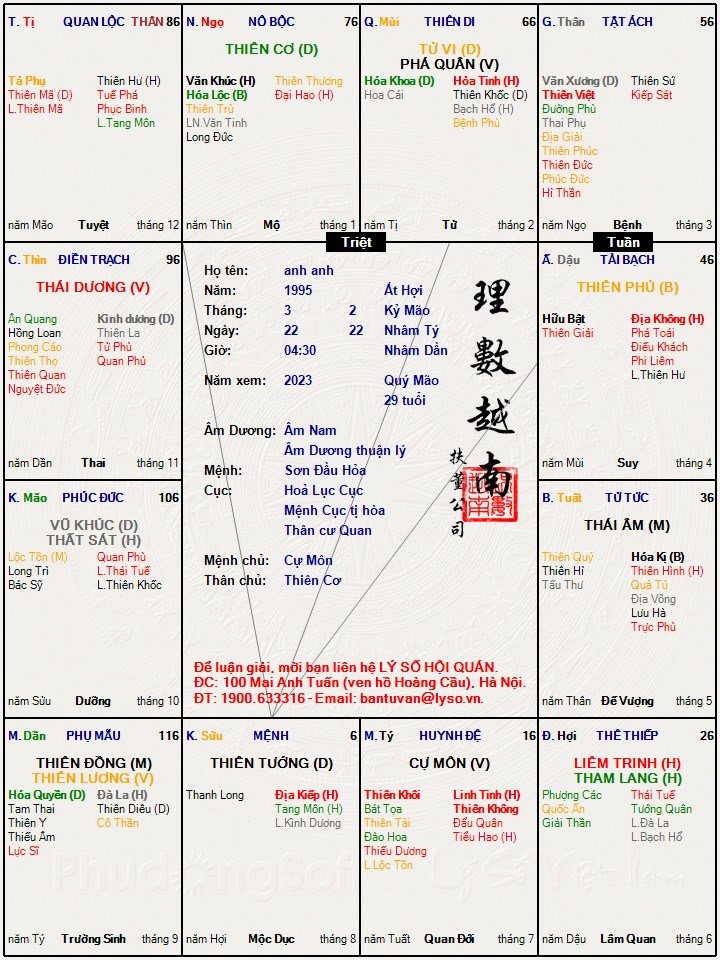 T. Tị QUAN LỘC THÂN 86
Tả Phụ
Thiên Mã (D)
L.Thiên Mã
Thiên Hư (H)
Tuế Phá
Phục Binh
L.Tang Môn
năm Mão Tuyệt tháng 12
N. Ngọ NÔ BỘC 76
THIÊN CƠ (D)
Văn Khúc (H)
Hóa Lộc (B)
Thiên Trù
LN.Văn Tinh
Long Đức
Thiên Thương
Đại Hao (H)
năm Thìn Mộ tháng 1
Q. Mùi THIÊN DI 66
TỬ VI (D)
PHÁ QUÂN (V)
Hóa Khoa (D)
Hoa Cái
Hỏa Tinh (H)
Thiên Khốc (D)
Bạch Hổ (H)
Bệnh Phù
năm Tị Tử tháng 2
G. Thân TẬT ÁCH 56
Văn Xương (D)
Thiên Việt
Đường Phù
Thai Phụ
Địa Giải
Thiên Phúc
Thiên Đức
Phúc Đức
Hỉ Thần
Thiên Sứ
Kiếp Sát
năm Ngọ Bệnh tháng 3
Triệt
Tuần
C. Thìn ĐIỀN TRẠCH 96
THÁI DƯƠNG (V)
Ân Quang
Hồng Loan
Phong Cáo
Thiên Thọ
Thiên Quan
Nguyệt Đức
Kình dương (D)
Thiên La
Tử Phù
Quan Phủ
năm Dần Thai tháng 11
Họ tên: anh anh
Năm: 1995 Ất Hợi
Tháng: 3 2 Kỷ Mão
Ngày: 22 22 Nhâm Tý
Giờ: 04:30 Nhâm Dần
Năm xem: 2023 Quý Mão
29 tuổi
Âm Dương: Âm Nam
Âm Dương thuận lý
Mệnh: Sơn Đầu Hỏa
Cục: Hoả Lục Cục
Mệnh Cục tị hòa
Thân cư Quan
Mệnh chủ: Cự Môn
Thân chủ: Thiên Cơ
理數越南
扶董公司
Để luận giải, mời bạn liên hệ LÝ SỐ HỘI QUÁN.
ĐC: 100 Mai Anh Tuấn (ven hồ Hoàng Cầu), Hà Nội.
ĐT: 1900.633316 - Email: bantuvan@lyso.vn.
Ấ. Dậu TÀI BẠCH 46
THIÊN PHỦ (B)
Hữu Bật
Thiên Giải
Địa Không (H)
Phá Toái
Điếu Khách
Phi Liêm
L.Thiên Hư
năm Mùi Suy tháng 4
K. Mão PHÚC ĐỨC 106
VŨ KHÚC (D)
THẤT SÁT (H)
Lộc Tồn (M)
Long Trì
Bác Sỹ
Quan Phù
L.Thái Tuế
L.Thiên Khốc
năm Sửu Dưỡng tháng 10
B. Tuất TỬ TỨC 36
THÁI ÂM (M)
Thiên Quý
Thiên Hỉ
Tấu Thư
Hóa Kị (B)
Thiên Hình (H)
Quả Tú
Địa Võng
Lưu Hà
Trực Phù
năm Thân Đế Vượng tháng 5
M. Dần PHỤ MẪU 116
THIÊN ĐỒNG (M)
THIÊN LƯƠNG (V)
Hóa Quyền (D)
Tam Thai
Thiên Y
Thiếu Âm
Lực Sĩ
Đà La (H)
Thiên Diêu (D)
Cô Thần
năm Tý Trường Sinh tháng 9
K. Sửu MỆNH 6
THIÊN TƯỚNG (D)
Thanh Long
Địa Kiếp (H)
Tang Môn (H)
L.Kình Dương
năm Hợi Mộc Dục tháng 8
M. Tý HUYNH ĐỆ 16
CỰ MÔN (V)
Thiên Khôi
Bát Tọa
Thiên Tài
Đào Hoa
Thiếu Dương
L.Lộc Tồn
Linh Tinh (H)
Thiên Không
Đẩu Quân
Tiểu Hao (H)
năm Tuất Quan Đới tháng 7
Đ. Hợi THÊ THIẾP 26
LIÊM TRINH (H)
THAM LANG (H)
Phượng Các
Quốc Ấn
Giải Thần
Thái Tuế
Tướng Quân
L.Đà La
L.Bạch Hổ
năm Dậu Lâm Quan tháng 6
PhudongSoft Lý Số Việt Nam